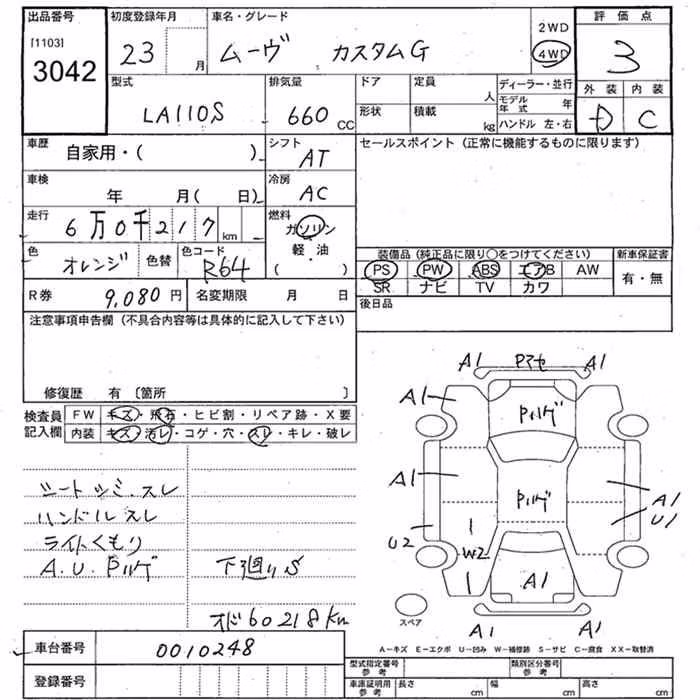 出品番号 初度登録年月 車名・グレード 評価点
[1103]
3042
23 月 ムーヴ カスタムG 2WD 4WD 3
型式 排気量 ドア 定員 人 ディーラー・並行 外装 内装
LA110S 660 CC 形状 積載 kg モデル年式 年 D C
ハンドル 左・右
車歴 自家用・( ) シフト AT セールスポイント (正常に機能するものに限ります)
車検 年 月( 日) 冷房 AC
走行 6万0千217 km 燃料 ガソリン
軽・油
( )
色 オレンジ 色替 色コード R64
装備品(純正品に限り○をつけてください) 新車保証書
PS PW ABS エアB AW 有・無
SR ナビ TV カワ
R券 9,080円 名変期限 月 日 後日品
注意事項申告欄 (不具合内容等は具体的に記入して下さい)
修復歴 有 〔箇所 〕
検査員記入欄 FW キズ・飛石・ヒビ割・リペア跡・X要
内装 キズ・汚レ・コゲ・穴・スレ・キレ・破レ
シートシミ.スレ
ハンドルスレ
ライトくもり
A.U.Pハゲ 下廻りS
オド60218km
A1 Pマセ A1
A1 Pハゲ
A1 Pハゲ A1
U1
U2 W2
A1
スペア
A1 A1
A-キズ E-エクボ U-凹み W-補修跡 S-サビ C-腐食 XX-取替済
車台番号 0010248
登録番号
型式指定番号 参考 類別区分番号 参考
車庫証明用 参考 長さ cm 幅 cm 高さ cm